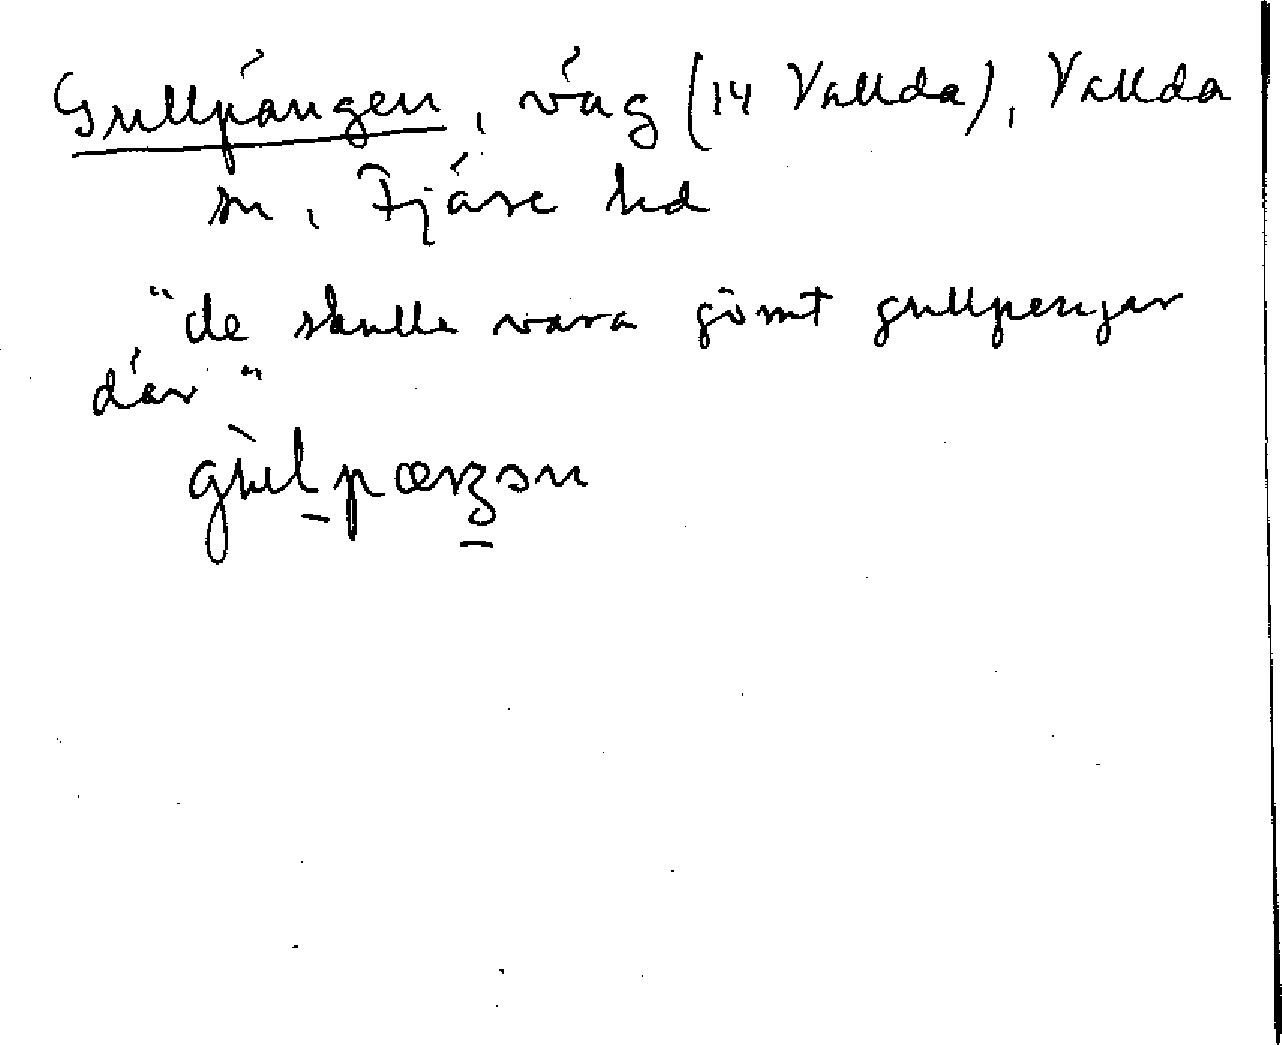 Gullpängen, väg (14 Vallda), Vallda
sn, Fjäre hd
"de skulle vara gömt gullpengar
där"